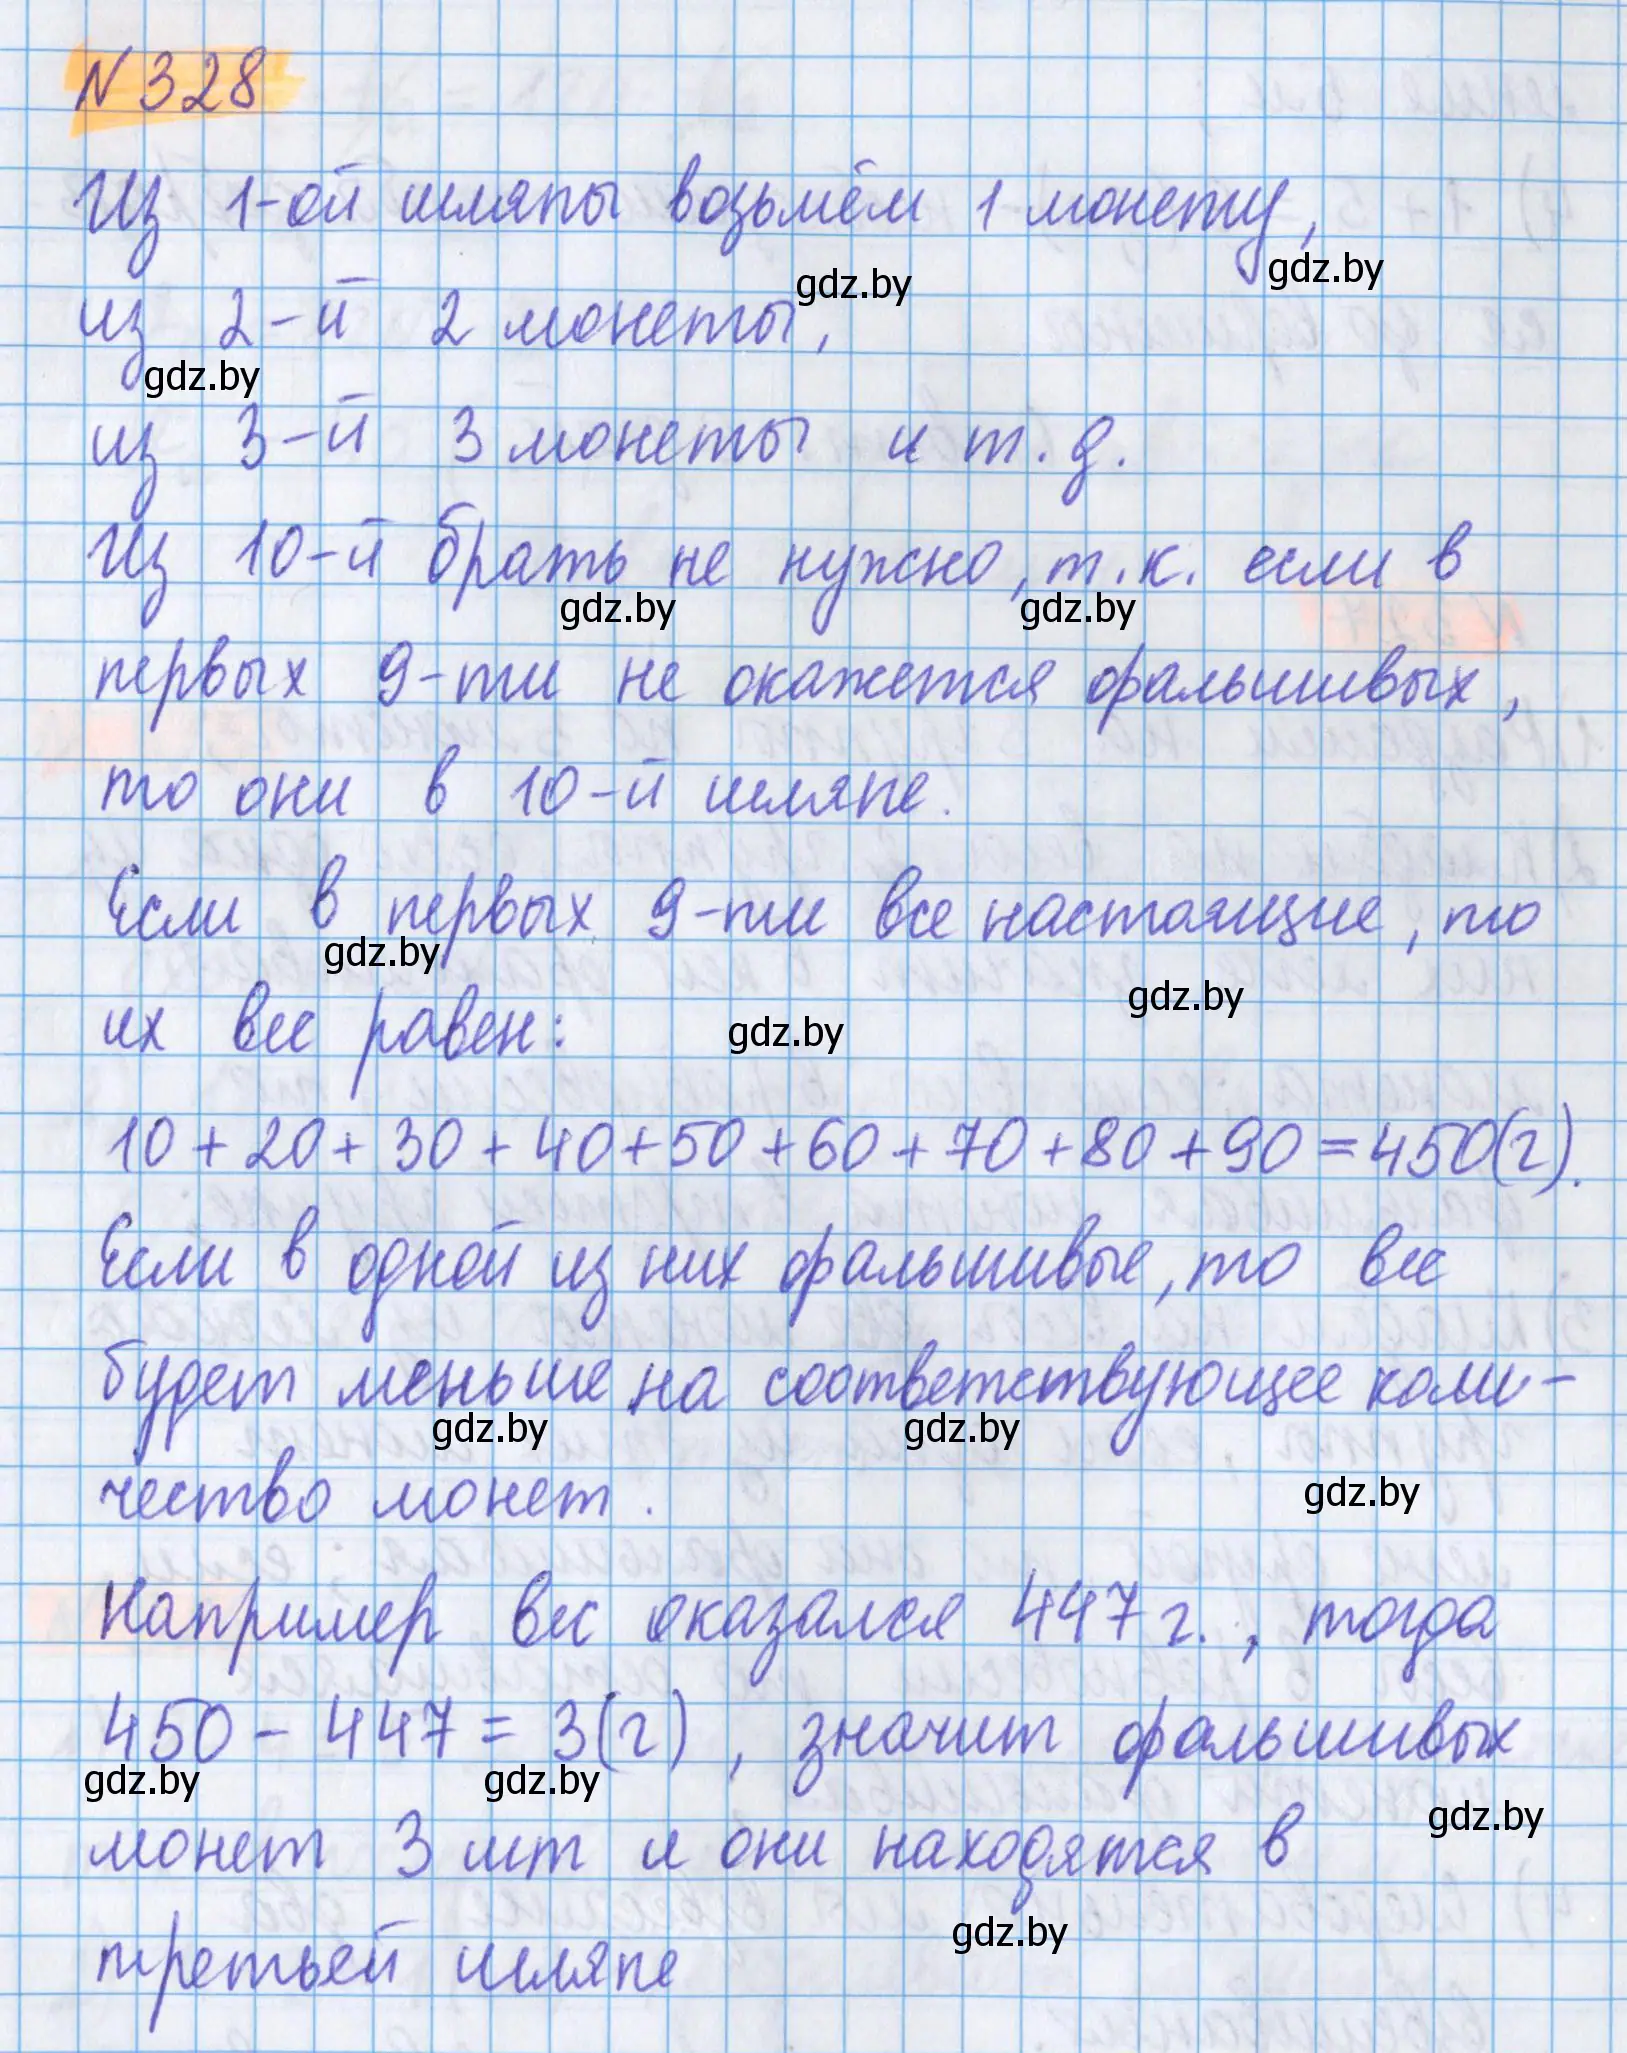 N 328
Из 1-ой шляпы возьмём 1 монету,
gdz.by
gdz.by
из 2-й 2 монеты,
gdz.by
из 3-й 3 монеты и т.д.
Из 10-й брать не нужно, т.к. если в
gdz.by
gdz.by
первых 9-ти не окажется фальшивых,
то они в 10-й шляпе.
Если в первых 9-ти все настоящие, то
gdz.by
gdz.by
их вес равен:
gdz.by
10+20+30+40+50+60+70+80+90=450(г).
Если в одной из них фальшивые, то вес
будет меньше на соответствующее коли-
gdz.by
gdz.by
чество монет.
gdz.by
Например вес оказался 447 г., тогда
450-447=3(г), значит фальшивых
gdz.by
gdz.by
gdz.by
монет 3 шт и они находятся в
gdz.by
третьей шляпе